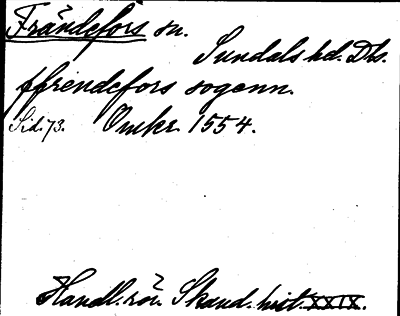 Frändefors sn.
Sundals hd. Dls.
ffrendefors sogenn.
Sid. 73. Omkr. 1554.
Handl. rör. Skand. hist. XXIX.